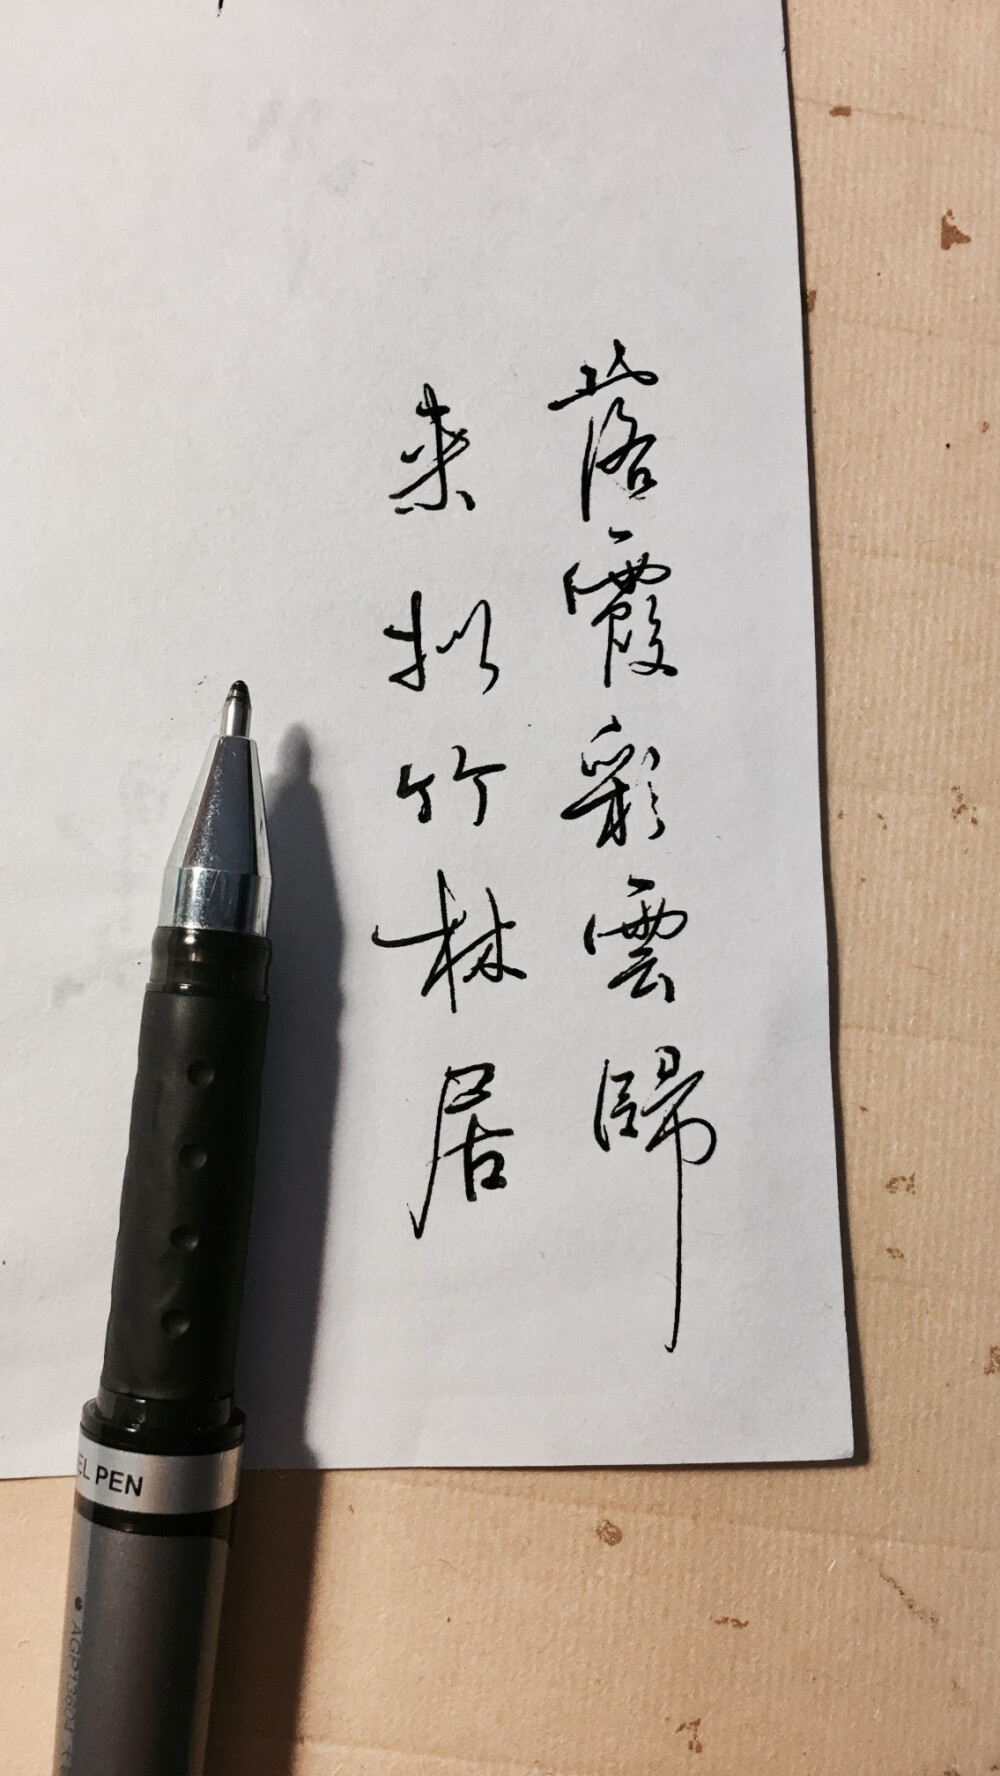 落霞彩雲歸
来拟竹林居
EL PEN
AGP13604